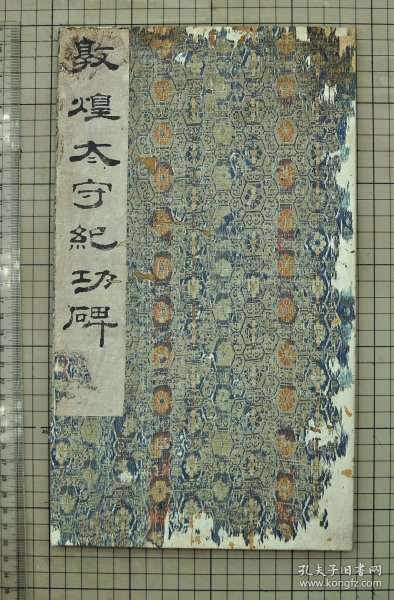 敦煌太守紀功碑
孔夫子旧书网
www.kongfz.com